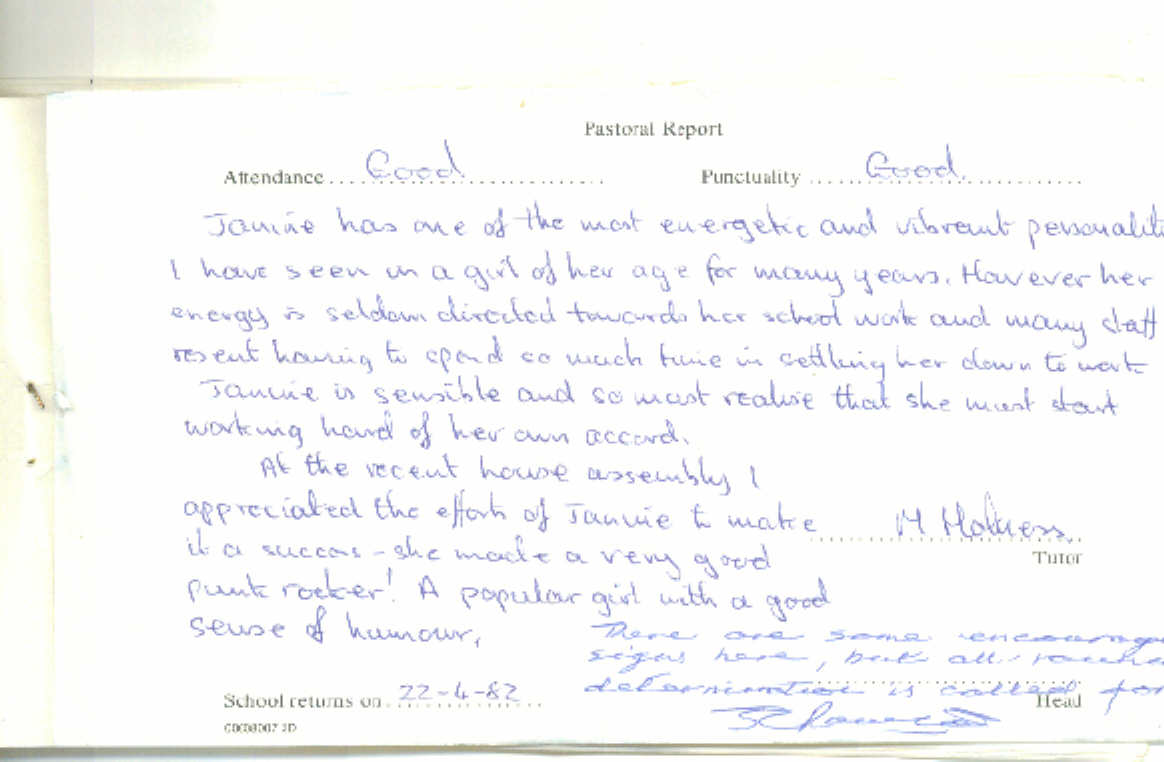 Pastoral Report
Attendance Good Punctuality Good
Jannie has one of the most energetic and vibrant personalit
I have seen in a girl of her age for many years. However her
energy is seldom directed towards her school work and many staff
resent having to spend so much time in settling her down to work
Jannie is sensible and so must realise that she must start
working hard of her own accord.
At the recent house assembly I
appreciated the efforts of Jannie to make
it a success - she made a very good
punk rocker! A popular girl with a good
sense of humour,
M
Tutor
There are some encourag
signs here, but all
determination is called for
Head
School returns on 22-4-82